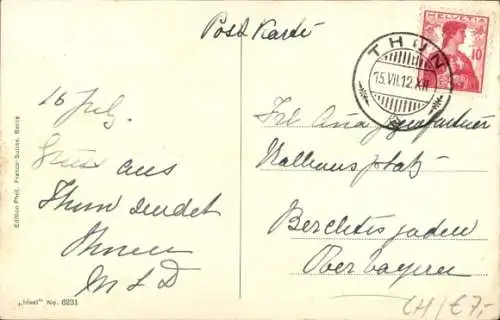 Post Karte
HELVETIA
10
THUN
15.VII.12.XII
16 July.
Gruss aus
Thun sendet
Ihnen
M & D
Frl. Anna
Rathausplatz
Berchtesgaden
Oberbayern
CH/€7,-
Edition Phot. Franco-Suisse, Berne
„Ideal" No. 6231